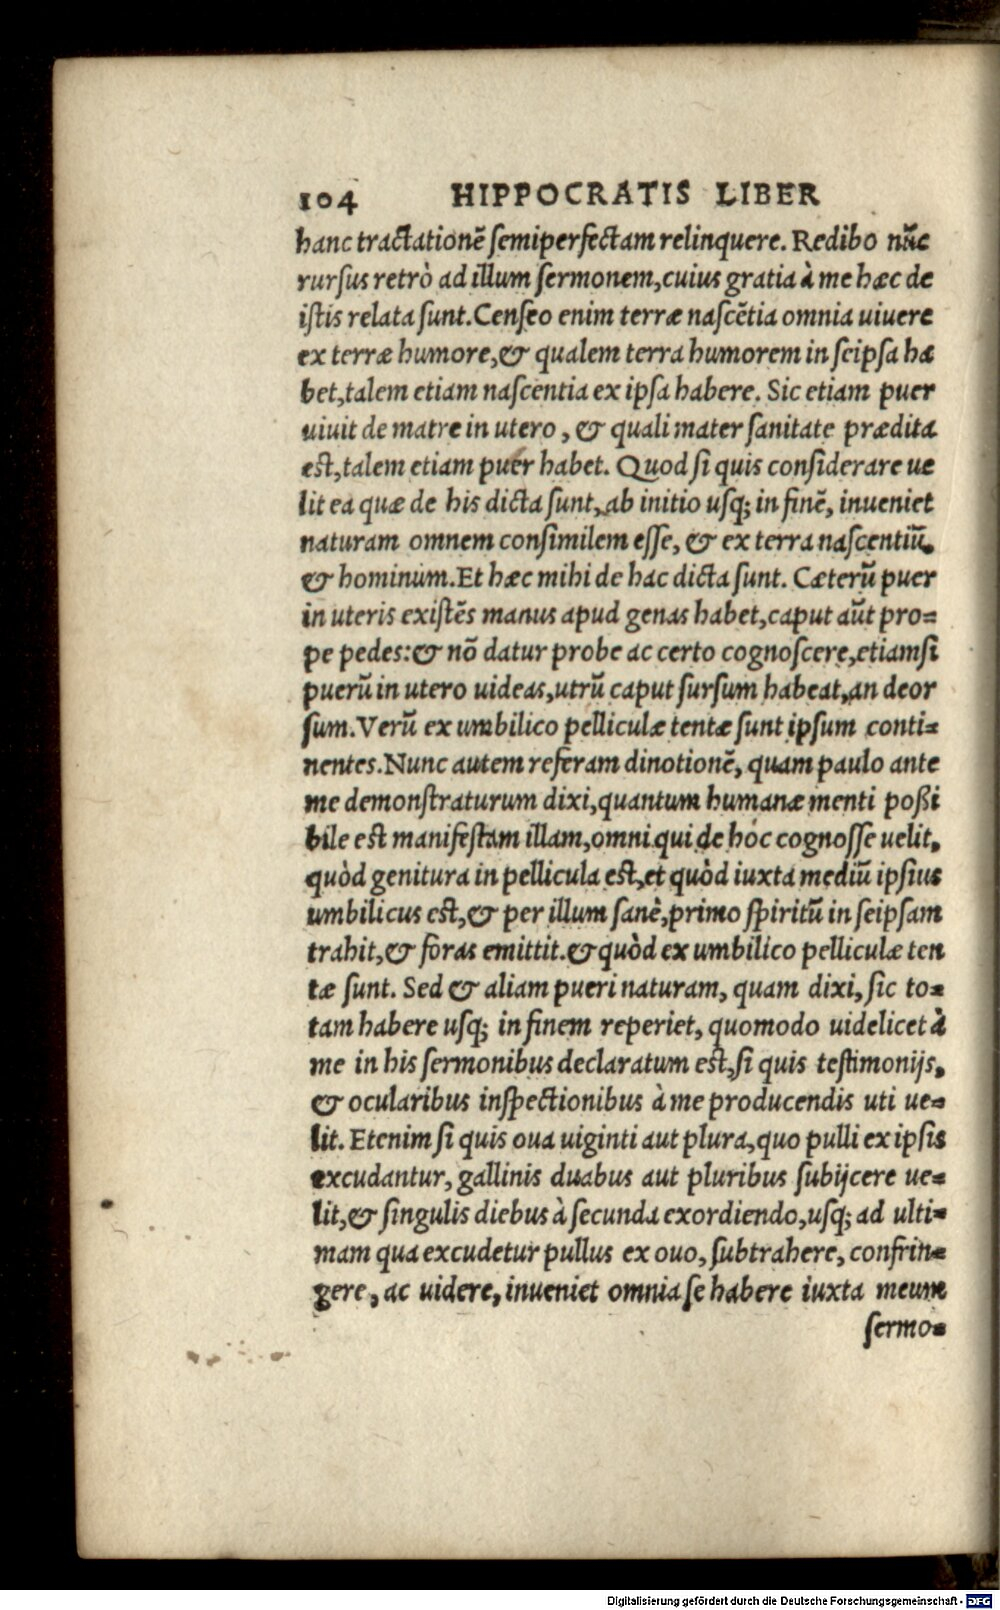 104 HIPPOCRATIS LIBER
hanc tractationē ſemiperfectam relinquere. Redibo nūc
rurſus retrò ad illum ſermonem,cuius gratia à me hæc de
iſtis relata ſunt.Cenſeo enim terræ naſcētia omnia uiuere
ex terræ humore,& qualem terra humorem in ſeipſa ha
bet,talem etiam naſcentia ex ipſa habere. Sic etiam puer
uiuit de matre in utero , & quali mater ſanitate prædita
est,talem etiam puer habet. Quod ſi quis conſiderare ue
lit ea quæ de his dicta ſunt, ab initio uſq; in finē, inueniet
naturam omnem conſimilem eſſe, & ex terra naſcentiū,
& hominum.Et hæc mihi de hac dicta ſunt. Cæterū puer
in uteris exiſtēs manus apud genas habet,caput aūt pro=
pe pedes:& nō datur probe ac certo cognoſcere,etiamſi
puerū in utero uideas,utrū caput ſurſum habeat,an deor
ſum.Verū ex umbilico pelliculæ tentæ ſunt ipſum conti=
nentes.Nunc autem referam dinotionē, quam paulo ante
me demonſtraturum dixi,quantum humanæ menti poßi
bile est manifeſtam illam,omni qui de hoc cognoſſe uelit,
quòd genitura in pellicula est,et quòd iuxta mediū ipſius
umbilicus est,& per illum ſanè,primo ſpiritū in ſeipſam
trahit,& foras emittit.& quòd ex umbilico pelliculæ ten
tæ ſunt. Sed & aliam pueri naturam, quam dixi, ſic to=
tam habere uſq; in finem reperiet, quomodo uidelicet à
me in his ſermonibus declaratum est,ſi quis teſtimonijs,
& ocularibus inſpectionibus à me producendis uti ue=
lit. Etenim ſi quis oua uiginti aut plura,quo pulli ex ipſis
excudantur, gallinis duabus aut pluribus ſubijcere ue=
lit,& ſingulis diebus à ſecunda exordiendo,uſq; ad ulti=
mam qua excudetur pullus ex ouo, ſubtrahere, confrin=
gere, ac uidere, inueniet omnia ſe habere iuxta meum
ſermo=
Digitalisierung gefördert durch die Deutsche Forschungsgemeinschaft - DFG